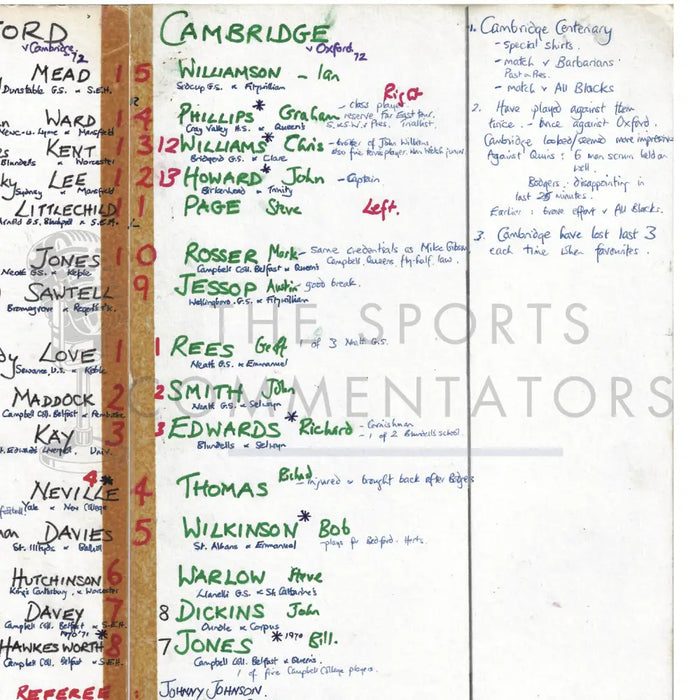 FORD
v Cambridge '72
CAMBRIDGE
v Oxford '72
MEAD 15
Dunstable G.S. & S.E.H.
WILLIAMSON - Ian
Sidcup G.S. & Fitzwilliam
Right
WARD 14
& Mansfield
PHILLIPS * Graham - class player
Cray Valley H.S. & Queen's
reserve for East tour.
triallist
KENT 13
Blundells & Worcester
12 WILLIAMS * Chris - brother of John Williams
Bridgend G.S. & Clare
LEE 12
Sydney & Mansfield
13 HOWARD * John - Captain
Birkenhead & Trinity
LITTLECHILD 11
Arnold G.S. Blackpool & S.E.H.
PAGE Steve
Left.
JONES 10
Neath G.S. & Keble
ROSSER Mark - same credentials as Mike Gibson
Campbell Coll. Belfast & Queen's
Campbell, Queens fly-half, law.
SAWTELL 9
Bromsgrove &
JESSOP Austin - good break.
Wellingboro. G.S. & Fitzwilliam
LOVE 1
& Keble
1 REES Geoff 1 of 3 Neath G.S.
Neath G.S. & Emmanuel
MADDOCK 2
Campbell Coll. Belfast & Pembroke
2 SMITH John
Neath G.S. & Selwyn
KAY 3
St. Edwards Liverpool Univ.
3 EDWARDS * Richard - Cornishman
- 1 of 2 Blundells school.
Blundells & Selwyn
4 *
NEVILLE 4
Yale & New College
THOMAS - injured & brought back after
DAVIES 5
St. Illtyds & Balliol
WILKINSON * Bob
St. Albans & Emmanuel
- plays for Bedford. Herts.
HUTCHINSON 6
King's Canterbury & Worcester
WARLOW Steve
Llanelli G.S. & St. Catharine's
DAVEY 7
Campbell Coll. Belfast & S.E.H.
8 DICKINS John
Oundle & Corpus
1970 '71 *
HAWKESWORTH 8
Campbell Coll. Belfast & S.E.H.
7 JONES * 1970 Bill.
Campbell Coll. Belfast & Queens.
1 of five Campbell College players.
REFEREE : JOHNNY JOHNSON.
1. Cambridge Centenary
- special shirts.
- match v Barbarians
Past & Pres.
- match v All Blacks
2. Have played against them
twice - once against Oxford.
Cambridge looked/seemed more impressive
Against Quins: 6 man scrum held on
well.
Bodgers: disappointing in
last 25 minutes.
Earlier: brave effort v All Blacks.
3. Cambridge have lost last 3
each time when favourites.
THE SPORTS
COMMENTATORS